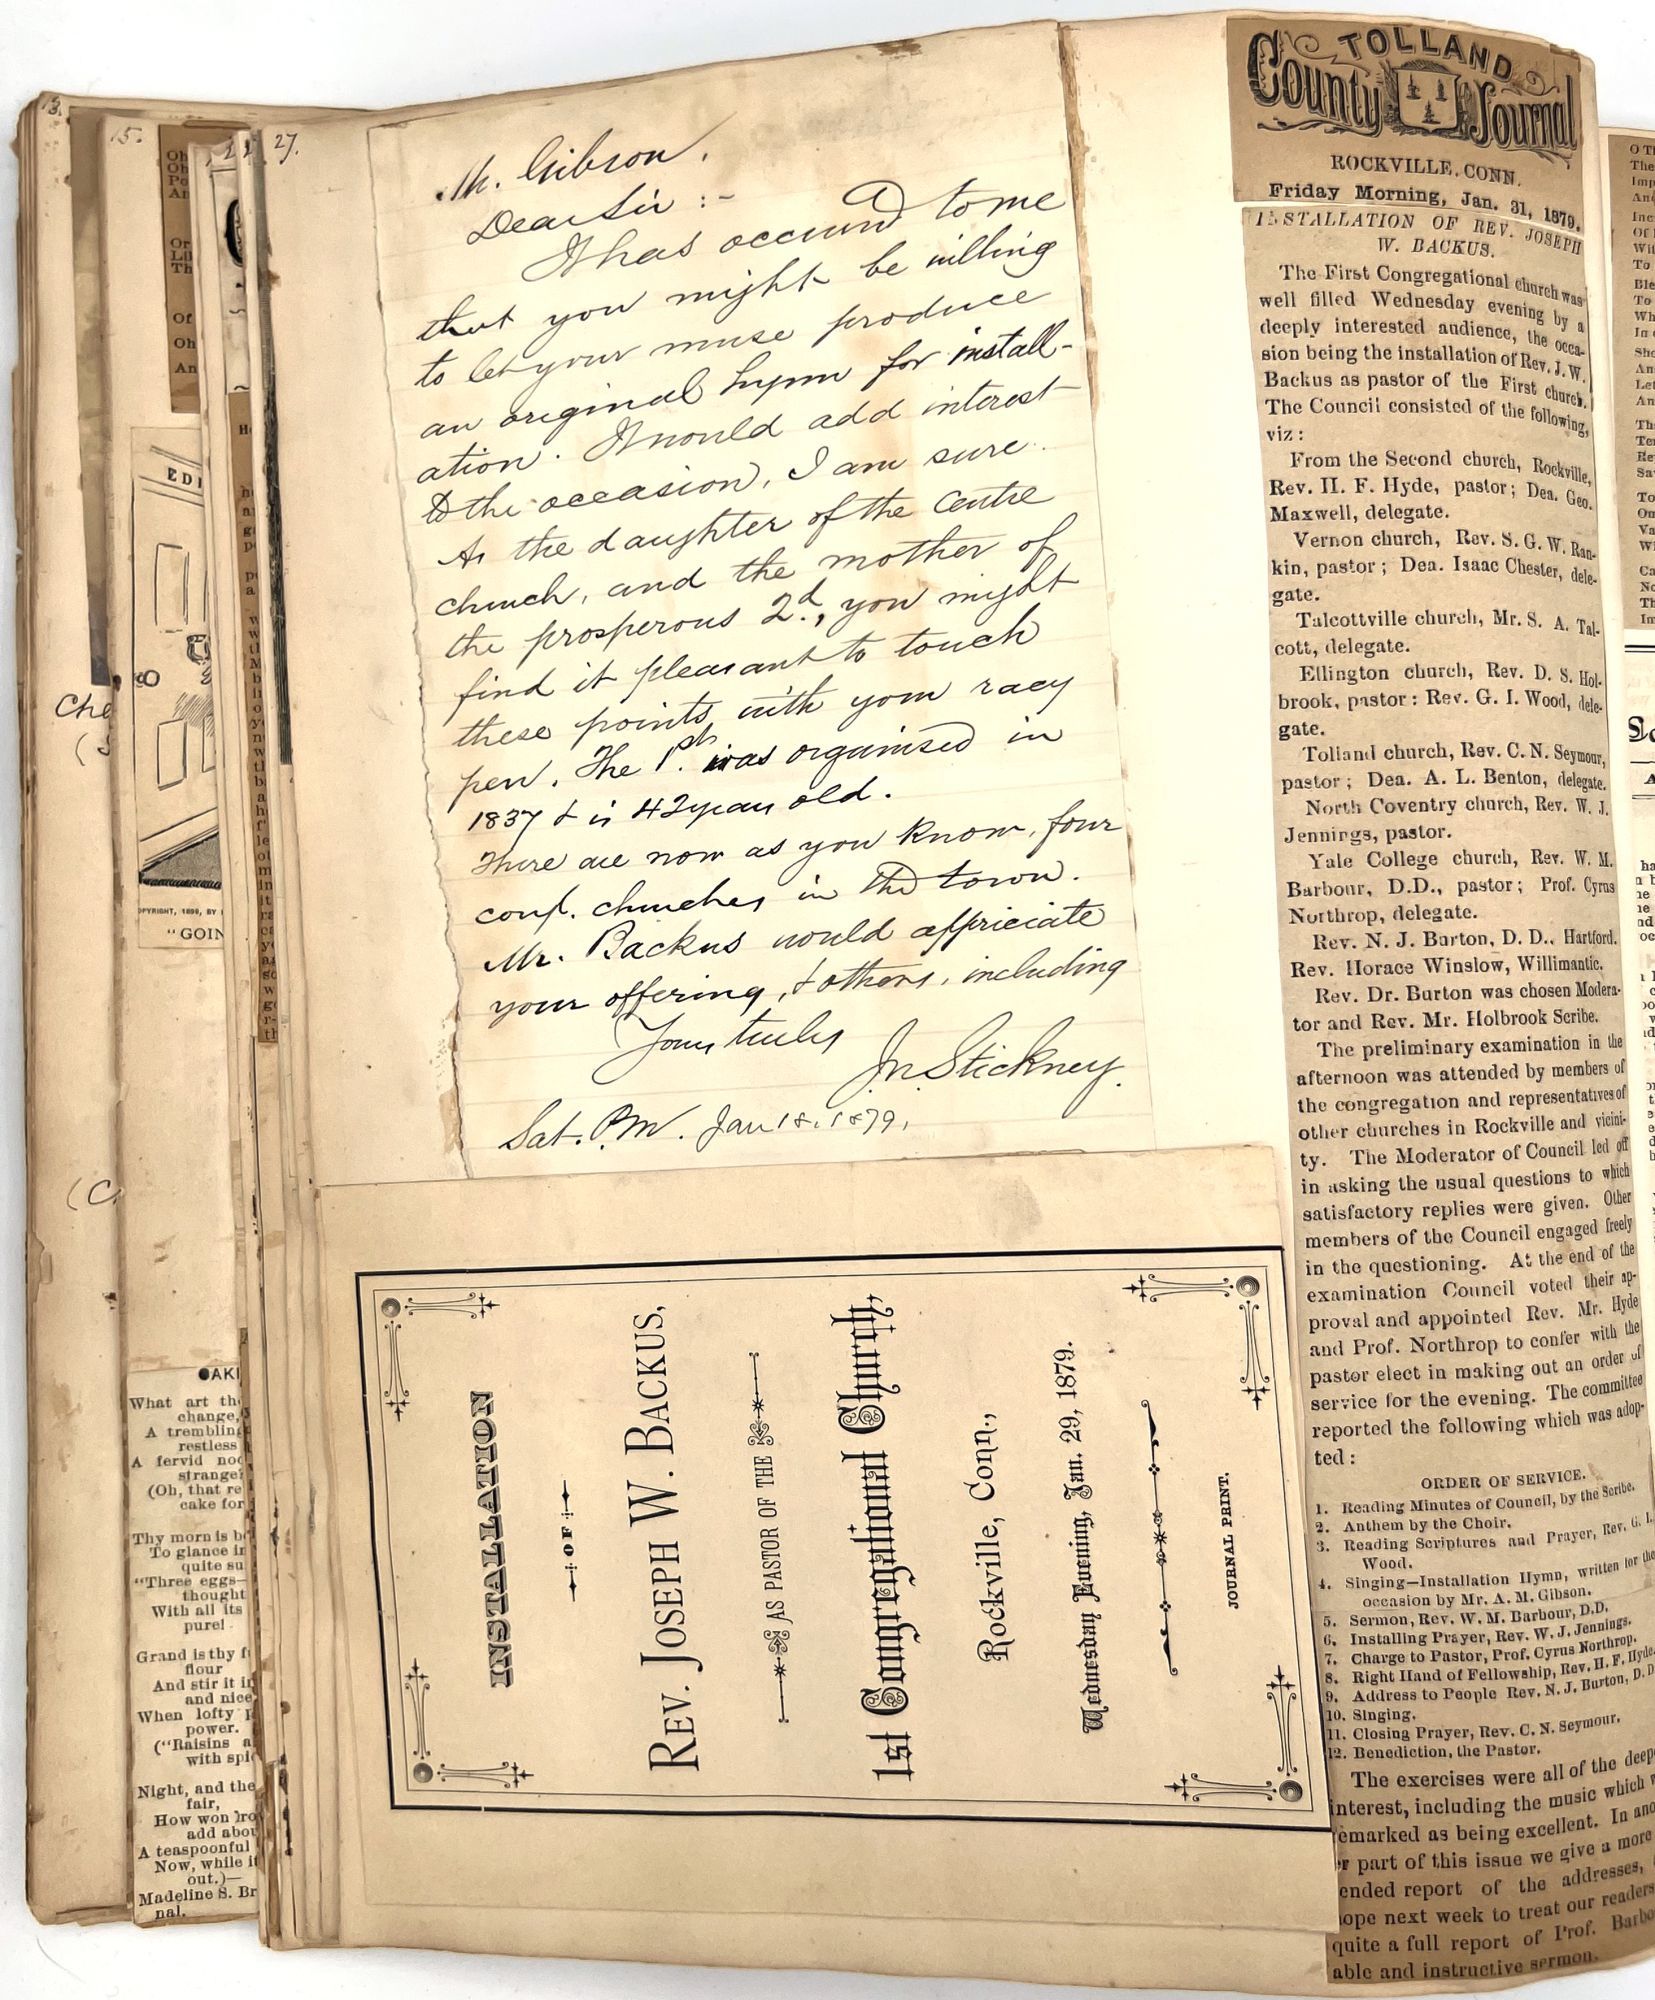 13.
15.
27.
Mr. Gibson.
Dear Sir :-
It has occurred to me
that you might be willing
to let your muse produce
an original hymn for install-
ation. It would add interest
to the occasion, I am sure.
As the daughter of the Centre
church, and the mother of
the prosperous 2d., you might
find it pleasant to touch
these points with your racy
pen. The 1st. was organised in
1837 & is 42 years old.
There are now as you know, four
cong. churches in the town.
Mr. Backus would appriciate
your offering, & others, including
Yours truly
Jn. Stickney.
Sat. P.M. Jan 18. 1879.
INSTALLATION
OF
REV. JOSEPH W. BACKUS,
AS PASTOR OF THE
1st Congregational Church,
Rockville, Conn.,
Wednesday Evening, Jan. 29, 1879.
JOURNAL PRINT.
TOLLAND
County Journal
ROCKVILLE, CONN.
Friday Morning, Jan. 31, 1879.
INSTALLATION OF REV. JOSEPH
W. BACKUS.
The First Congregational church was
well filled Wednesday evening by a
deeply interested audience, the occa-
sion being the installation of Rev. J. W.
Backus as pastor of the First church.
The Council consisted of the following,
viz :
From the Second church, Rockville,
Rev. H. F. Hyde, pastor; Dea. Geo.
Maxwell, delegate.
Vernon church, Rev. S. G. W. Ran-
kin, pastor; Dea. Isaac Chester, dele-
gate.
Talcottville church, Mr. S. A. Tal-
cott, delegate.
Ellington church, Rev. D. S. Hol-
brook, pastor: Rev. G. I. Wood, dele-
gate.
Tolland church, Rev. C. N. Seymour,
pastor; Dea. A. L. Benton, delegate.
North Coventry church, Rev. W. J.
Jennings, pastor.
Yale College church, Rev. W. M.
Barbour, D.D., pastor; Prof. Cyrus
Northrop, delegate.
Rev. N. J. Burton, D. D., Hartford.
Rev. Horace Winslow, Willimantic.
Rev. Dr. Burton was chosen Modera-
tor and Rev. Mr. Holbrook Scribe.
The preliminary examination in the
afternoon was attended by members of
the congregation and representatives of
other churches in Rockville and vicini-
ty. The Moderator of Council led off
in asking the usual questions to which
satisfactory replies were given. Other
members of the Council engaged freely
in the questioning. At the end of the
examination Council voted their ap-
proval and appointed Rev. Mr. Hyde
and Prof. Northrop to confer with the
pastor elect in making out an order of
service for the evening. The committee
reported the following which was adop-
ted :
ORDER OF SERVICE.
1. Reading Minutes of Council, by the Scribe.
2. Anthem by the Choir.
3. Reading Scriptures and Prayer, Rev. G. I.
Wood.
4. Singing—Installation Hymn, written for the
occasion by Mr. A. M. Gibson.
5. Sermon, Rev. W. M. Barbour, D.D.
6. Installing Prayer, Rev. W. J. Jennings.
7. Charge to Pastor, Prof. Cyrus Northrop.
8. Right Hand of Fellowship, Rev. H. F. Hyde.
9. Address to People Rev. N. J. Burton, D. D
10. Singing.
11. Closing Prayer, Rev. C. N. Seymour.
12. Benediction, the Pastor.
The exercises were all of the deep
interest, including the music which
remarked as being excellent. In
part of this issue we give a more
ended report of the addresses,
hope next week to treat our readers
quite a full report of Prof.
able and instructive sermon.
What art
change,
A
restless
A fervid
(Oh, that
cake for
Thy morn is
To glance
quite
"Three eggs—
thought
With all its
Grand is thy
flour
And stir it
and nice
When lofty
power.
("Raisins
with
Night, and the
fair,
How won
add
A teaspoonful
Now, while
out.)—
Madeline S.
"GOIN
COPYRIGHT, 1899, BY